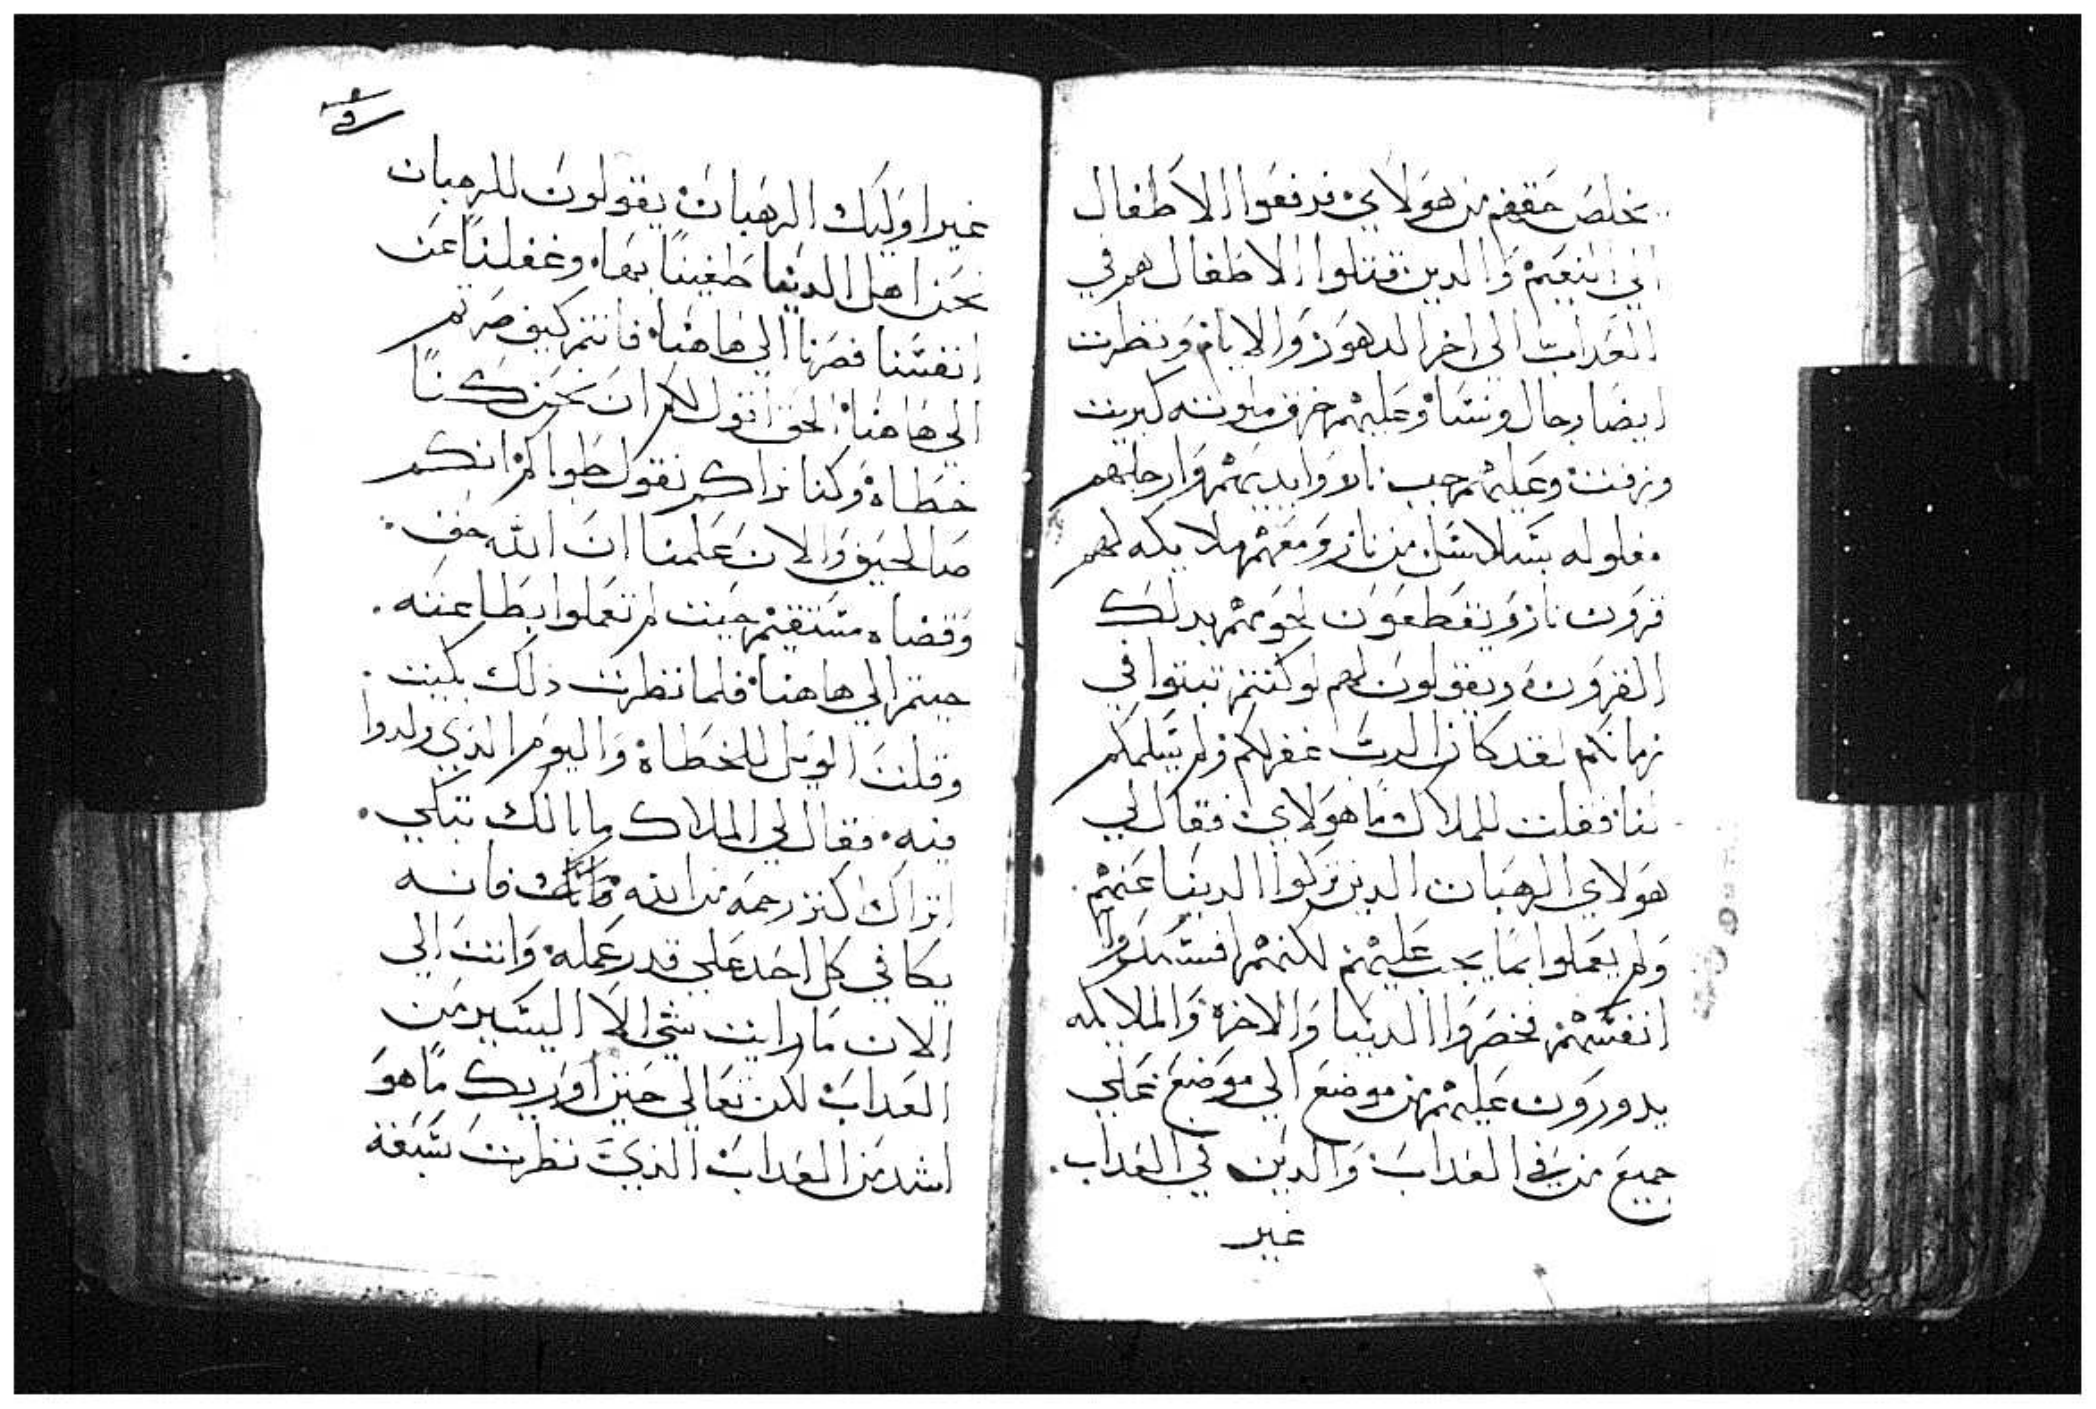 يخلص حقهم من هولاي فدفعوا الاطفال
الي النعيم والدين قتلوا الاطفال هم في
العداب الي اخر الدهور والايام ونظرت
ايضا رجال ونسا وعليهم خرق ملوته كبريت
وزفت وعليهم جبب نار وايديهم وارجلهم
مغلوله بسلاسل من نار ومعهم ملايكه لهم
قرون نار ويقطعون لحومهم بدلك
القرون ويقولون لهم لو كنتم تبتوا في
زمانكم لقد كان الرب غفر لكم ولم يسلمكم
لنا فقلت للملاك ما هولاي فقال لي
هولاي الرهبان الدين تركوا الدنيا عنهم
ولم يعملوا بما يجب عليهم لكنهم افسدوا
انفسهم فخصروا الدنيا والاخرة والملايكه
يدورون عليهم من موضع الي موضع علي
جميع من في العداب والدين في العداب
غير
غير اوليك الرهبان يقولون للرهبان
نحن اهل الدنيا طغينا بها وغفلنا عن
انفسنا فصرنا الي هاهنا فانتم كيف صرتم
الي هاهنا الحق اقول لكم ان نحن كنا
خطاه وكنا نراكم نقول طوباكم انكم
صالحين والان علمنا ان الله حق
وقضاه مستقيم حيت لم تعملوا بطاعته
جيتم الي هاهنا فلما نظرت ذلك بكيت
وقلت الويل للخطاه واليوم الذي ولدوا
فيه فقال لي الملاك ما بالك تبكي
اتراك اكتر رحمه من الله فانه
يكافي كل احد علي قدر عمله وانت الي
الان ما رايت شي الا اليسير من
العداب لكن تعالي حتي اوريك ما هو
اشد من العداب الذي نظرت سبعة